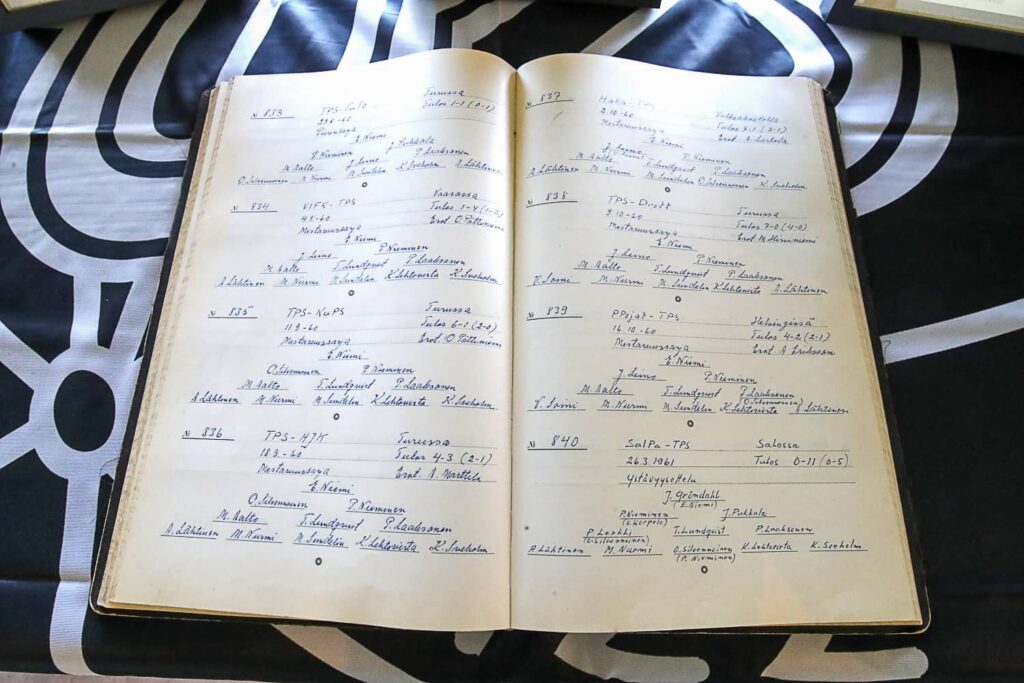 № 833 TPS-TuTo Turussa
29.8-60 Tulos 1-1 (0-1)
E. Niemi
P. Nieminen J. Pukkala
M. Aalto J. Leino P. Laaksonen
O. Silvennoinen M. Nurmi M. Sundelin K. Sveholm A. Lähtinen
№ 834 VIFK-TPS Vaasassa
4.9-60 Tulos 1-4
Mestaruussarja Erot. O. Pättiniemi
E. Niemi
J. Leino P. Nieminen
M. Aalto T. Lundqvist P. Laaksonen
A. Lähtinen M. Nurmi M. Sundelin K. Lehtovirta K. Sveholm
№ 835 TPS-KuPS Turussa
11.9-60 Tulos 6-1 (2-0)
Mestaruussarja Erot. O. Pättiniemi
E. Niemi
O. Silvennoinen P. Nieminen
M. Aalto T. Lundqvist P. Laaksonen
A. Lähtinen M. Nurmi M. Sundelin K. Lehtovirta K. Sveholm
№ 836 TPS-HJK Turussa
18.9-60 Tulos 4-3 (2-1)
Mestaruussarja Erot. A. Marttila
E. Niemi
O. Silvennoinen P. Nieminen
M. Aalto T. Lundqvist P. Laaksonen
A. Lähtinen M. Nurmi M. Sundelin K. Lehtovirta K. Sveholm
№ 837 Haka-TPS Valkeakoskella
2.10-60 Tulos 7-1 (2-1)
Mestaruussarja Erot.
E. Niemi
J. Leino P. Nieminen
M. Aalto T. Lundqvist P. Laaksonen
A. Lähtinen M. Nurmi M. Sundelin O. Silvennoinen K. Sveholm
№ 838 TPS-Drott Turussa
9.10-60 Tulos 7-0 (4-0)
Mestaruussarja Erot. M. Hirviniemi
E. Niemi
J. Leino P. Nieminen
M. Aalto T. Lundqvist P. Laaksonen
V. Soini M. Nurmi M. Sundelin K. Lehtovirta A. Lähtinen
№ 839 PPojat-TPS Helsingissä
16.10.-60 Tulos 4-2 (2-1)
Mestaruussarja Erot. A. Eriksson
E. Niemi
J. Leino P. Nieminen
M. Aalto T. Lundqvist P. Laaksonen
(O. Silvennoinen)
V. Soini M. Nurmi M. Sundelin K. Lehtovirta A. Lähtinen
№ 840 SalPa-TPS Salossa
26.3.1961 Tulos 0-11 (0-5)
Ystävyysottelu
J. Gröndahl
(E. Niemi)
P. Nieminen J. Pukkala
(V. Korpela)
T. Lundqvist P. Laaksonen
(O. Silvennoinen)
A. Lähtinen M. Nurmi O. Silvennoinen K. Lehtovirta K. Sveholm
(P. Nieminen)